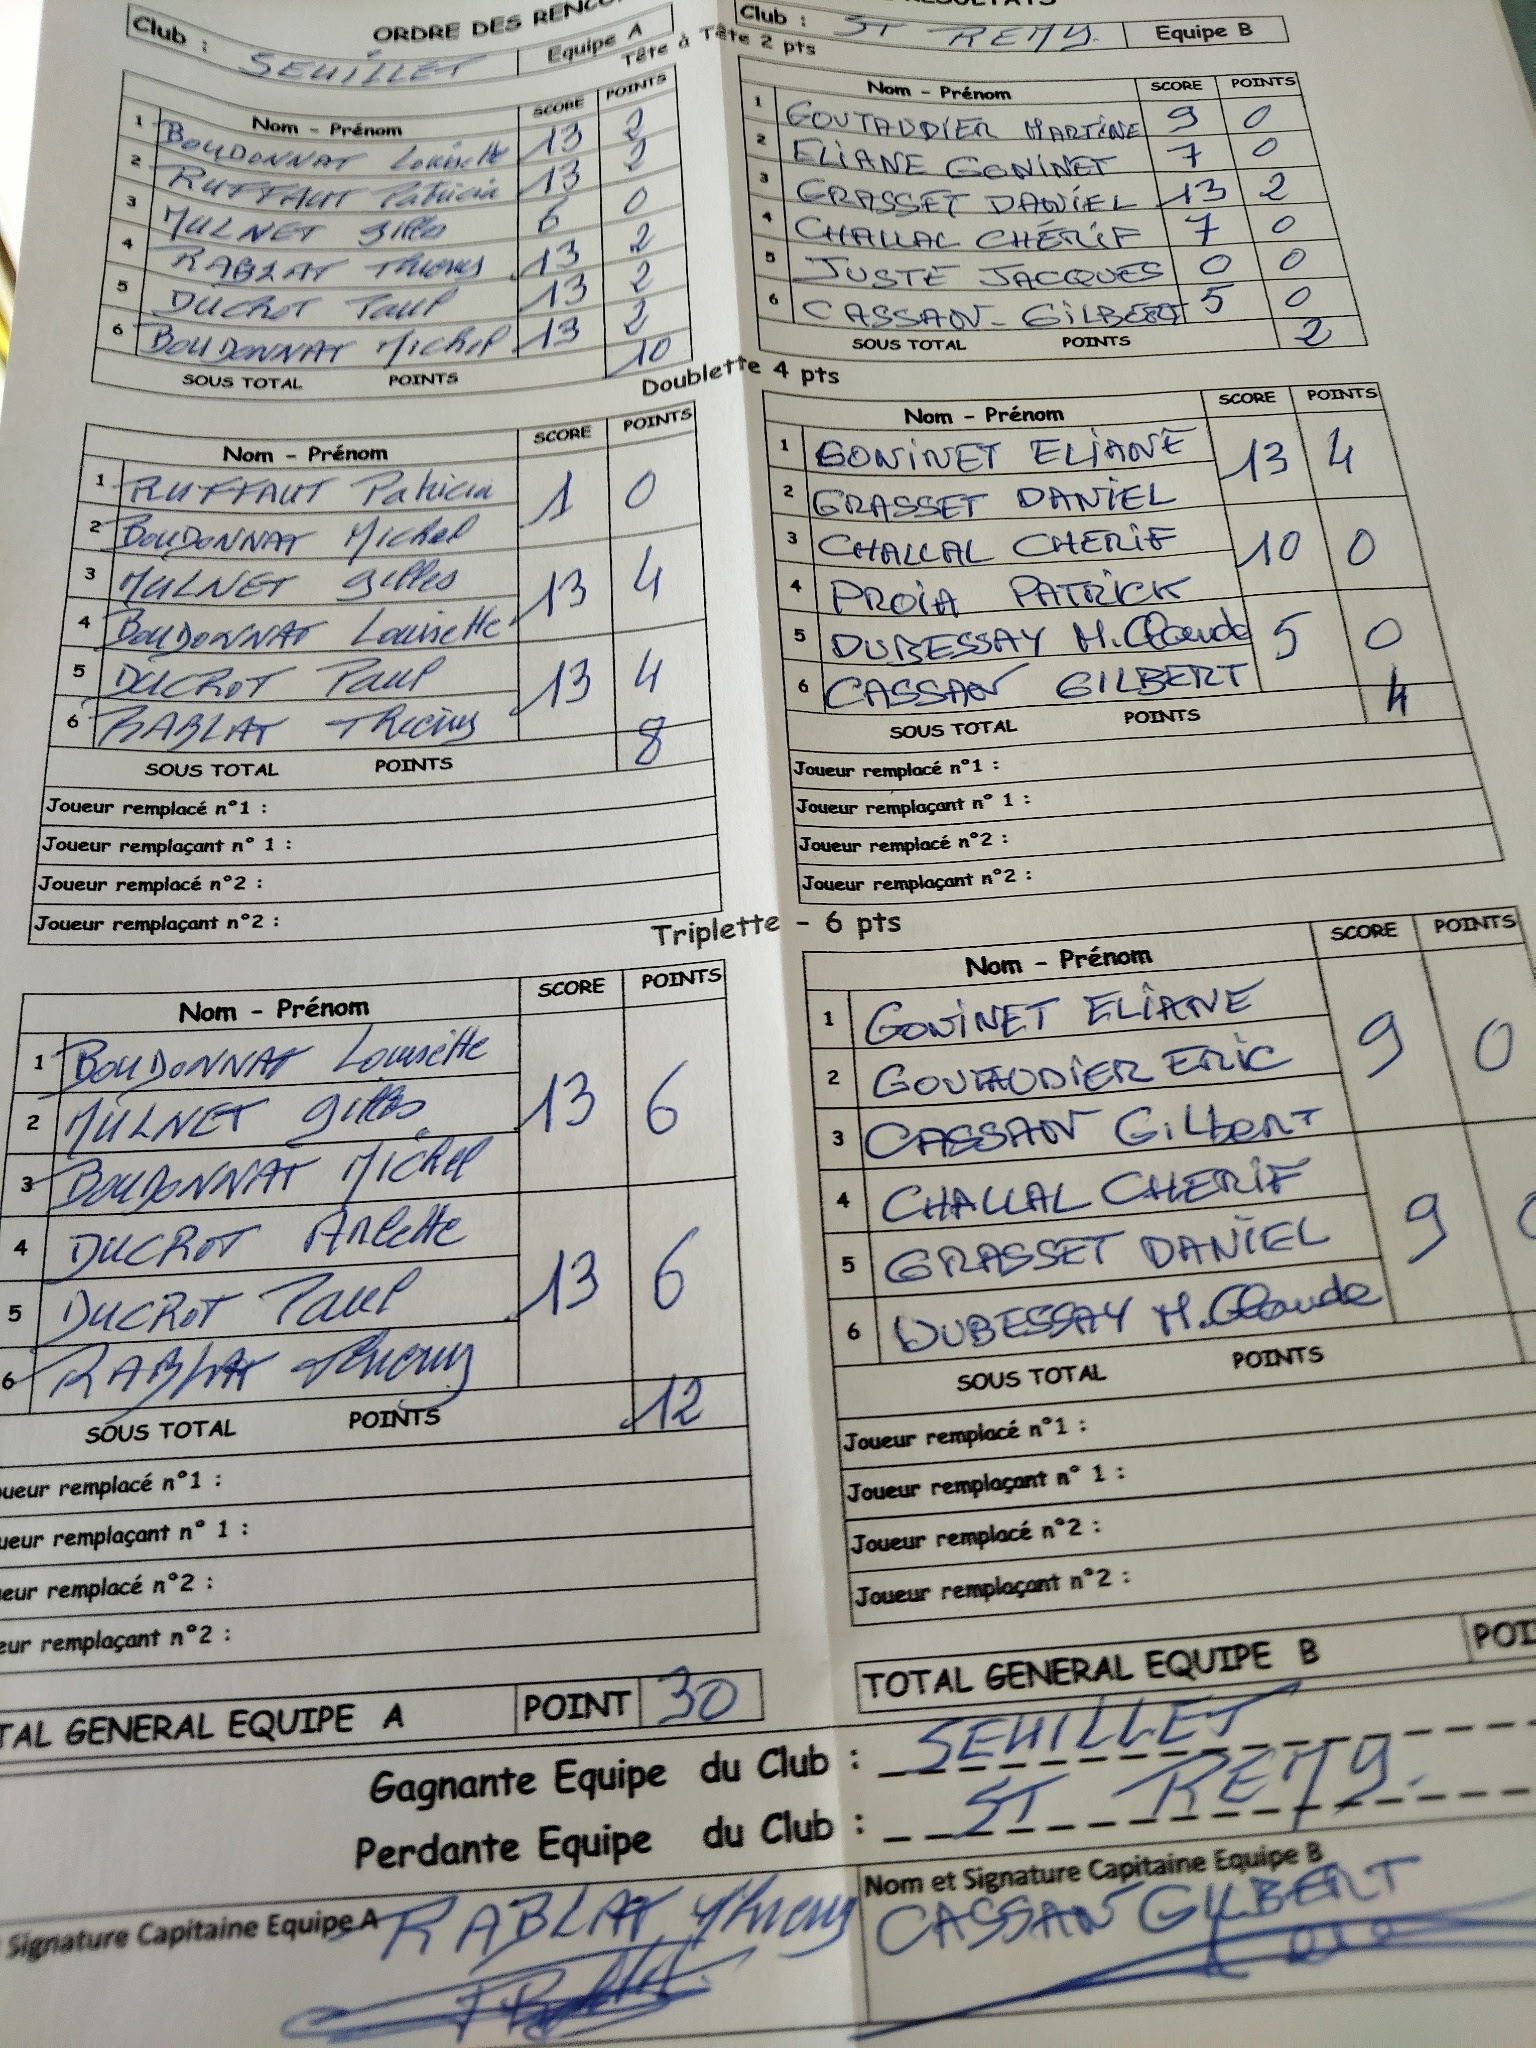 ORDRE DES RENCO
Club : SEUILLET Equipe A
Club : ST REMY. Equipe B
Tête à Tête 2 pts
Nom - Prénom SCORE POINTS
1 BOUDONNAT Louisette 13 2
2 RUFFAUT Patricia 13 2
3 MULNET Gilles 6 0
4 RABLAT Thierry 13 2
5 DUCROT Paul 13 2
6 BOUDONNAT Michel 13 2
SOUS TOTAL POINTS 10
Nom - Prénom SCORE POINTS
1 GOUTAUDIER MARTINE 9 0
2 ELIANE GONINET 7 0
3 GRASSET DANIEL 13 2
4 CHALLAL CHÉRIF 7 0
5 JUSTE JACQUES 0 0
6 CASSAN- GILBERT 5 0
SOUS TOTAL POINTS 2
Doublette 4 pts
Nom - Prénom SCORE POINTS
1 RUFFAUT Patricia 1 0
2 BOUDONNAT Michel
3 MULNET Gilles 13 4
4 BOUDONNAT Louisette
5 DUCROT Paul 13 4
6 RABLAT Thierry
SOUS TOTAL POINTS 8
Joueur remplacé n°1 :
Joueur remplaçant n° 1 :
Joueur remplacé n°2 :
Joueur remplaçant n°2 :
Nom - Prénom SCORE POINTS
1 GONINET ELIANE 13 4
2 GRASSET DANIEL
3 CHALLAL CHERIF 10 0
4 PROIA PATRICK
5 DUBESSAY M.Claude 5 0
6 CASSAN GILBERT
SOUS TOTAL POINTS 4
Joueur remplacé n°1 :
Joueur remplaçant n° 1 :
Joueur remplacé n°2 :
Joueur remplaçant n°2 :
Triplette - 6 pts
Nom - Prénom SCORE POINTS
1 BOUDONNAT Louisette 13 6
2 MULNET Gilles
3 BOUDONNAT Michel
4 DUCROT Arlette 13 6
5 DUCROT Paul
6 RABLAT Thierry
SOUS TOTAL POINTS 12
ueur remplacé n°1 :
ueur remplaçant n° 1 :
eur remplacé n°2 :
eur remplaçant n°2 :
Nom - Prénom SCORE POINTS
1 GONINET ELIANE 9 0
2 GOUTAUDIER ERIC
3 CASSAN GILbERT
4 CHALLAL CHERIF 9 0
5 GRASSET DANIEL
6 DUBESSAY M.Claude
SOUS TOTAL POINTS
Joueur remplacé n°1 :
Joueur remplaçant n° 1 :
Joueur remplacé n°2 :
Joueur remplaçant n°2 :
TAL GENERAL EQUIPE A POINT 30
TOTAL GENERAL EQUIPE B POI
Gagnante Equipe du Club : SEUILLET
Perdante Equipe du Club : ST REMY.
Signature Capitaine Equipe A RABLAT Thierry
Nom et Signature Capitaine Equipe B
CASSAN GILBERT